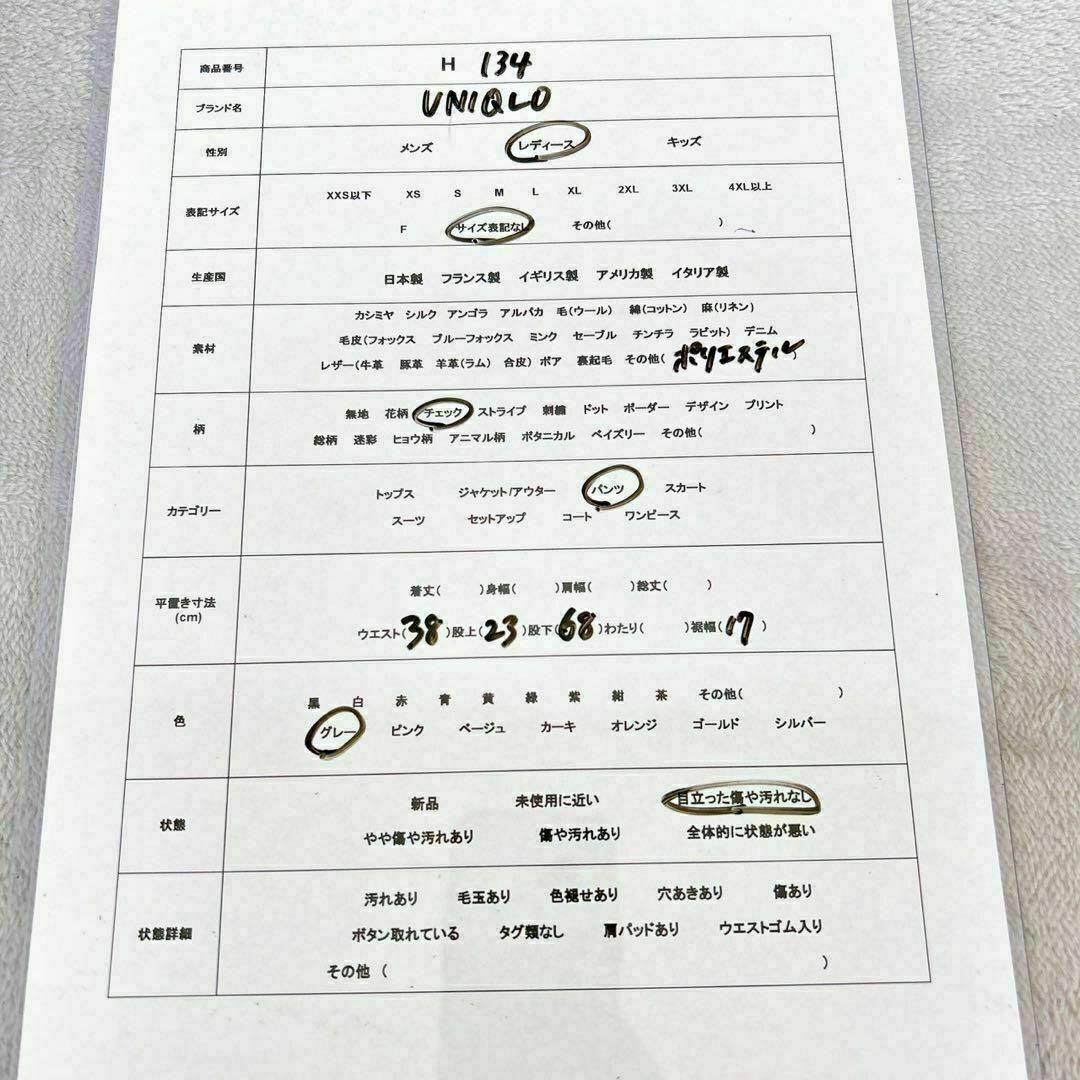 商品番号 H 134
ブランド名 UNIQLO
性別 メンズ レディース キッズ
XXS以下 XS S M L XL 2XL 3XL 4XL以上
表記サイズ
F サイズ表記なし その他( )
生産国 日本製 フランス製 イギリス製 アメリカ製 イタリア製
カシミヤ シルク アンゴラ アルパカ 毛(ウール) 綿(コットン) 麻(リネン)
素材 毛皮(フォックス ブルーフォックス ミンク セーブル チンチラ ラビット) デニム
レザー(牛革 豚革 羊革(ラム) 合皮) ボア 裏起毛 その他( ポリエステル
無地 花柄 チェック ストライプ 刺繍 ドット ボーダー デザイン プリント
柄
総柄 迷彩 ヒョウ柄 アニマル柄 ボタニカル ペイズリー その他( )
トップス ジャケット/アウター パンツ スカート
カテゴリー
スーツ セットアップ コート ワンピース
着丈( )身幅( )肩幅( )総丈( )
平置き寸法
(cm)
ウエスト(38)股上(23)股下(68)わたり( )裾幅(17)
黒 白 赤 青 黄 緑 紫 紺 茶 その他( )
色
グレー ピンク ベージュ カーキ オレンジ ゴールド シルバー
新品 未使用に近い 目立った傷や汚れなし
状態
やや傷や汚れあり 傷や汚れあり 全体的に状態が悪い
汚れあり 毛玉あり 色褪せあり 穴あきあり 傷あり
状態詳細 ボタン取れている タグ類なし 肩パッドあり ウエストゴム入り
その他 ( )